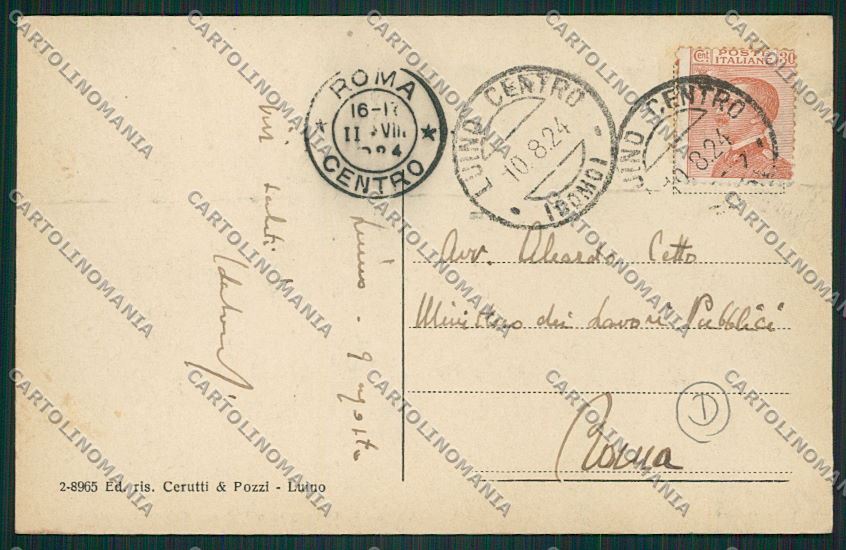 Cent. POSTE 30
ITALIANE
ROMA
16-17
II VIII
924
CENTRO
LUINO CENTRO
10.8.24
(COMO)
LUINO CENTRO
10.8.24
Luino - 9 agosto
Vivi saluti
Avv. Aleardo Cetto
Ministero dei Lavori Pubblici
Roma
2-8965 Ed. ris. Cerutti & Pozzi - Luino
CARTOLINOMANIA